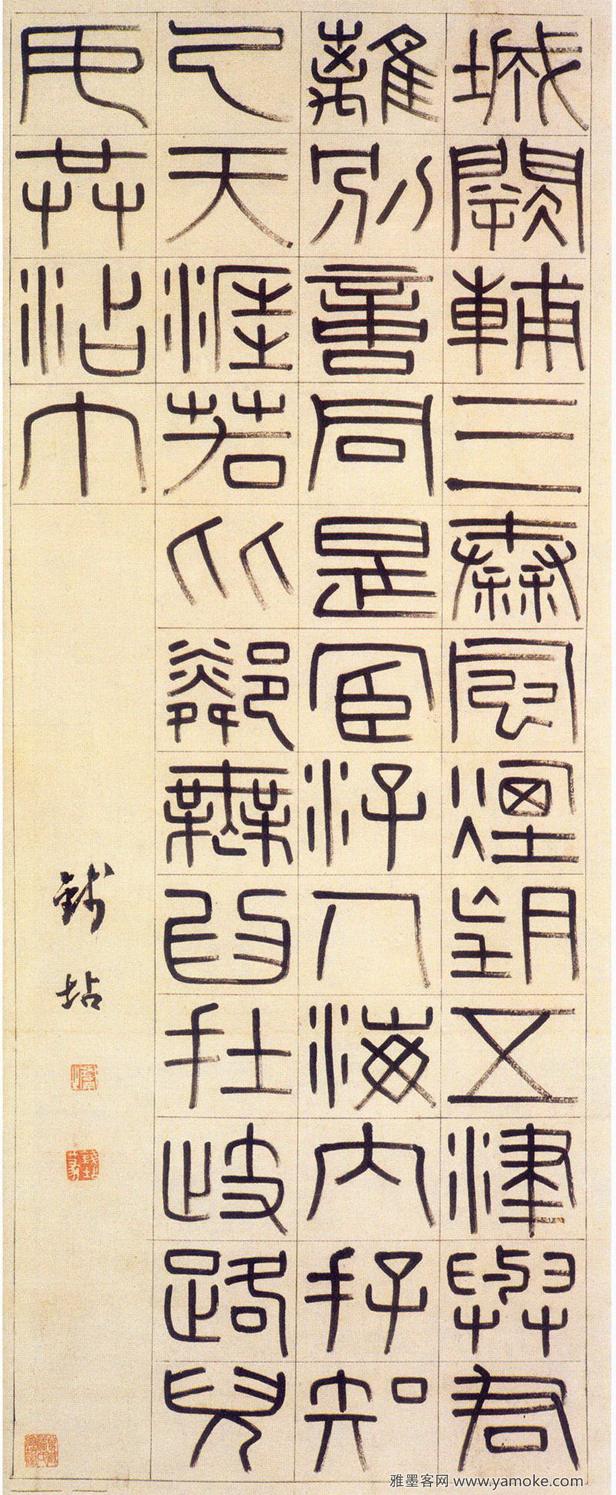 城闕輔三秦風煙望五津與君
離別意同是宦汓人海內存知
己天涯若比鄰無為在歧路兒
女共沾巾
錢坫
雅墨客网 www.yamoke.com